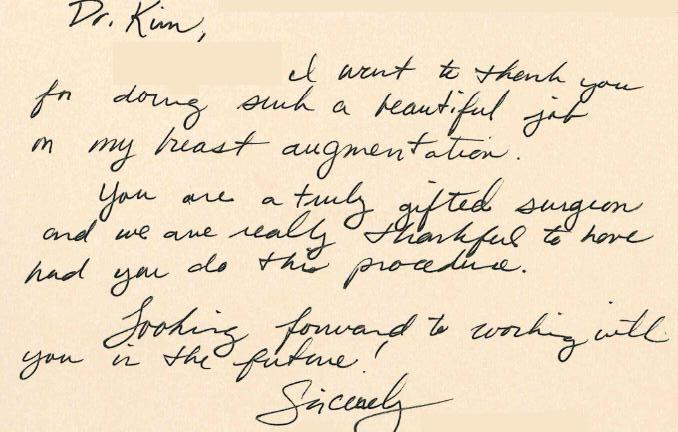 Dr. Kim,
I want to thank you
for doing such a beautiful job
on my breast augmentation.
You are a truly gifted surgeon
and we are really thankful to have
had you do this procedure.
Looking forward to working with
you in the future!
Sincerely